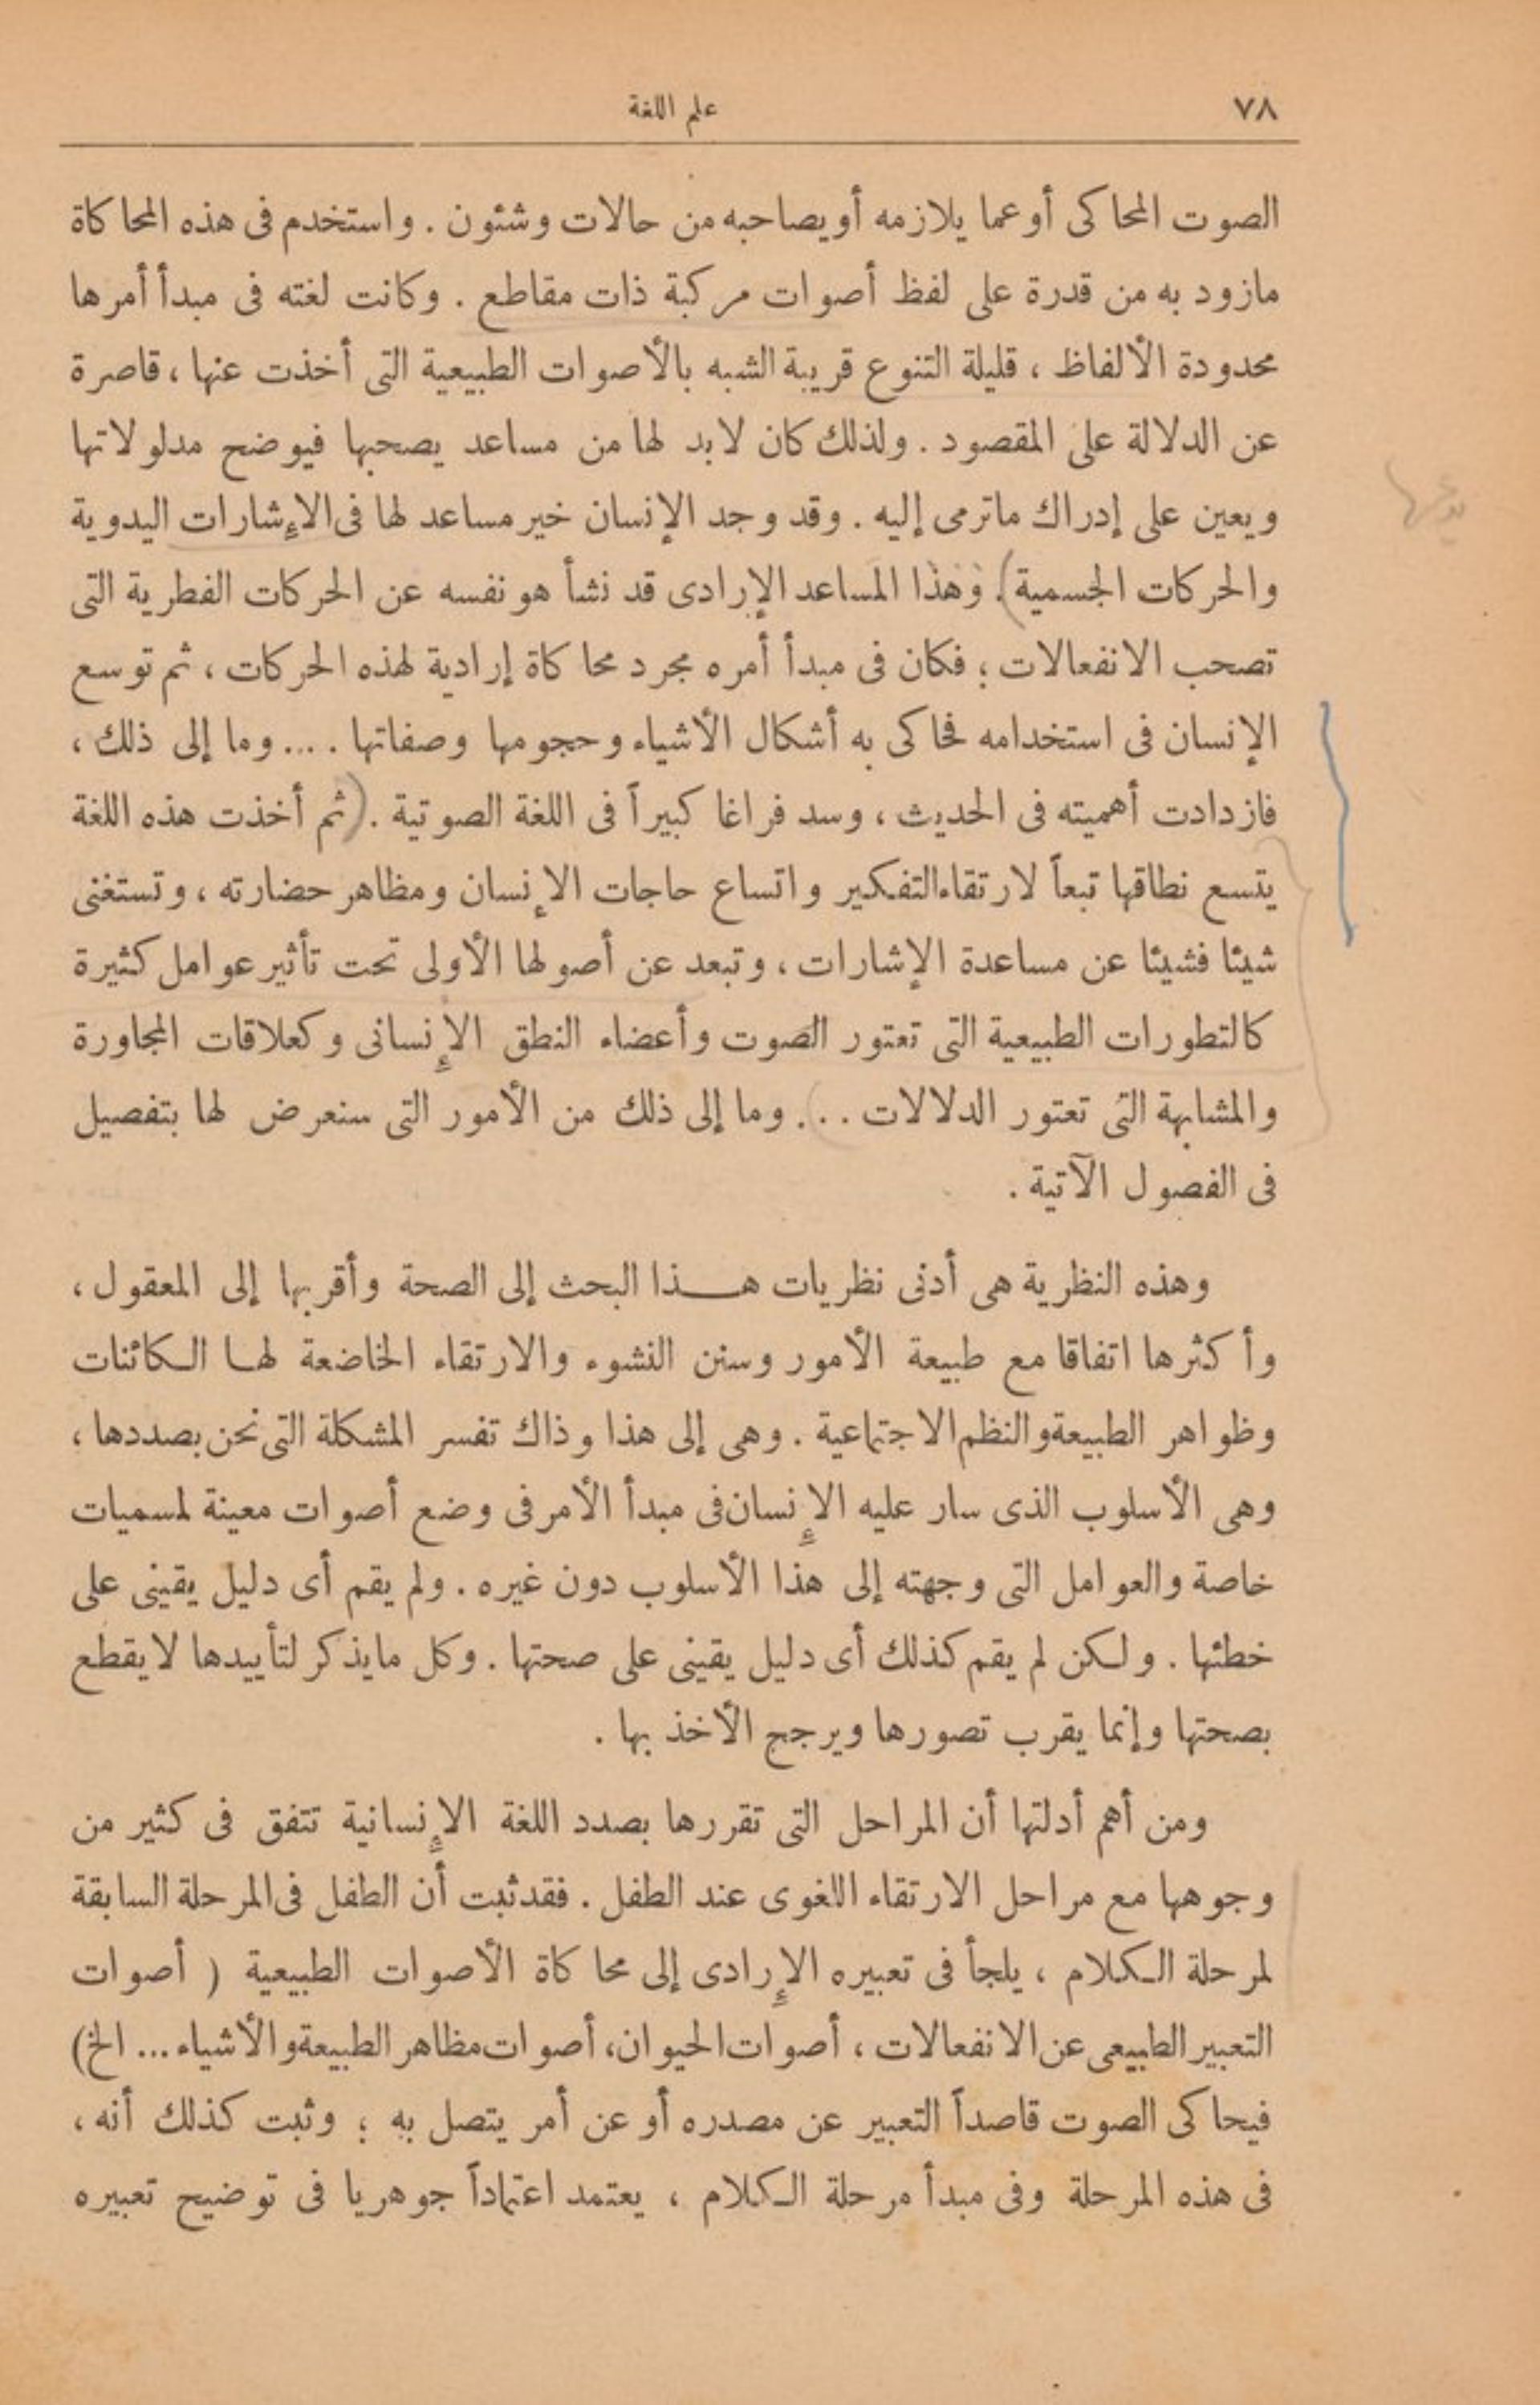 ٧٨ علم اللغة
الصوت المحاكى أو عما يلازمه أو يصاحبه من حالات وشئون . واستخدم فى هذه المحاكاة
مازود به من قدرة على لفظ أصوات مركبة ذات مقاطع . وكانت لغته فى مبدأ أمرها
محدودة الألفاظ ، قليلة التنوع قريبة الشبه بالأصوات الطبيعية التى أخذت عنها ، قاصرة
عن الدلالة على المقصود . ولذلك كان لابد لها من مساعد يصحبها فيوضح مدلولاتها
ويعين على إدراك ماترمى إليه . وقد وجد الإنسان خير مساعد لها فى الإشارات اليدوية
والحركات الجسمية). وهذا المساعد الإرادى قد نشأ هو نفسه عن الحركات الفطرية التى
تصحب الانفعالات ؛ فكان فى مبدأ أمره مجرد محاكاة إرادية لهذه الحركات ، ثم توسع
الإنسان فى استخدامه فحاكى به أشكال الأشياء وحجومها وصفاتها .... وما إلى ذلك ،
فازدادت أهميته فى الحديث ، وسد فراغا كبيراً فى اللغة الصوتية . (ثم أخذت هذه اللغة
يتسع نطاقها تبعاً لارتقاء التفكير واتساع حاجات الإنسان ومظاهر حضارته ، وتستغنى
شيئا فشيئا عن مساعدة الإشارات ، وتبعد عن أصولها الأولى تحت تأثير عوامل كثيرة
كالتطورات الطبيعية التى تعتور الصوت وأعضاء النطق الإنسانى وكعلاقات المجاورة
والمشابهة التى تعتور الدلالات ... وما إلى ذلك من الأمور التى سنعرض لها بتفصيل
فى الفصول الآتية .
وهذه النظرية هى أدنى نظريات هـذا البحث إلى الصحة وأقربها إلى المعقول ،
وأكثرها اتفاقا مع طبيعة الأمور وسنن النشوء والارتقاء الخاضعة لها الكائنات
وظواهر الطبيعة والنظم الاجتماعية . وهى إلى هذا وذاك تفسر المشكلة التى نحن بصددها ،
وهى الأسلوب الذى سار عليه الإنسان فى مبدأ الأمر فى وضع أصوات معينة لمسميات
خاصة والعوامل التى وجهته إلى هذا الأسلوب دون غيره . ولم يقم أى دليل يقينى على
خطئها . ولكن لم يقم كذلك أى دليل يقينى على صحتها . وكل مايذكر لتأييدها لا يقطع
بصحتها وإنما يقرب تصورها ويرجح الأخذ بها .
ومن أهم أدلتها أن المراحل التى تقررها بصدد اللغة الإنسانية تتفق فى كثير من
وجوهها مع مراحل الارتقاء اللغوى عند الطفل . فقد ثبت أن الطفل فى المرحلة السابقة
لمرحلة الكلام ، يلجأ فى تعبيره الإرادى إلى محاكاة الأصوات الطبيعية ( أصوات
التعبير الطبيعى عن الانفعالات ، أصوات الحيوان، أصوات مظاهر الطبيعة والأشياء ... الخ)
فيحاكى الصوت قاصداً التعبير عن مصدره أو عن أمر يتصل به ؛ وثبت كذلك أنه ،
فى هذه المرحلة وفى مبدأ مرحلة الكلام ، يعتمد اعتماداً جوهريا فى توضيح تعبيره